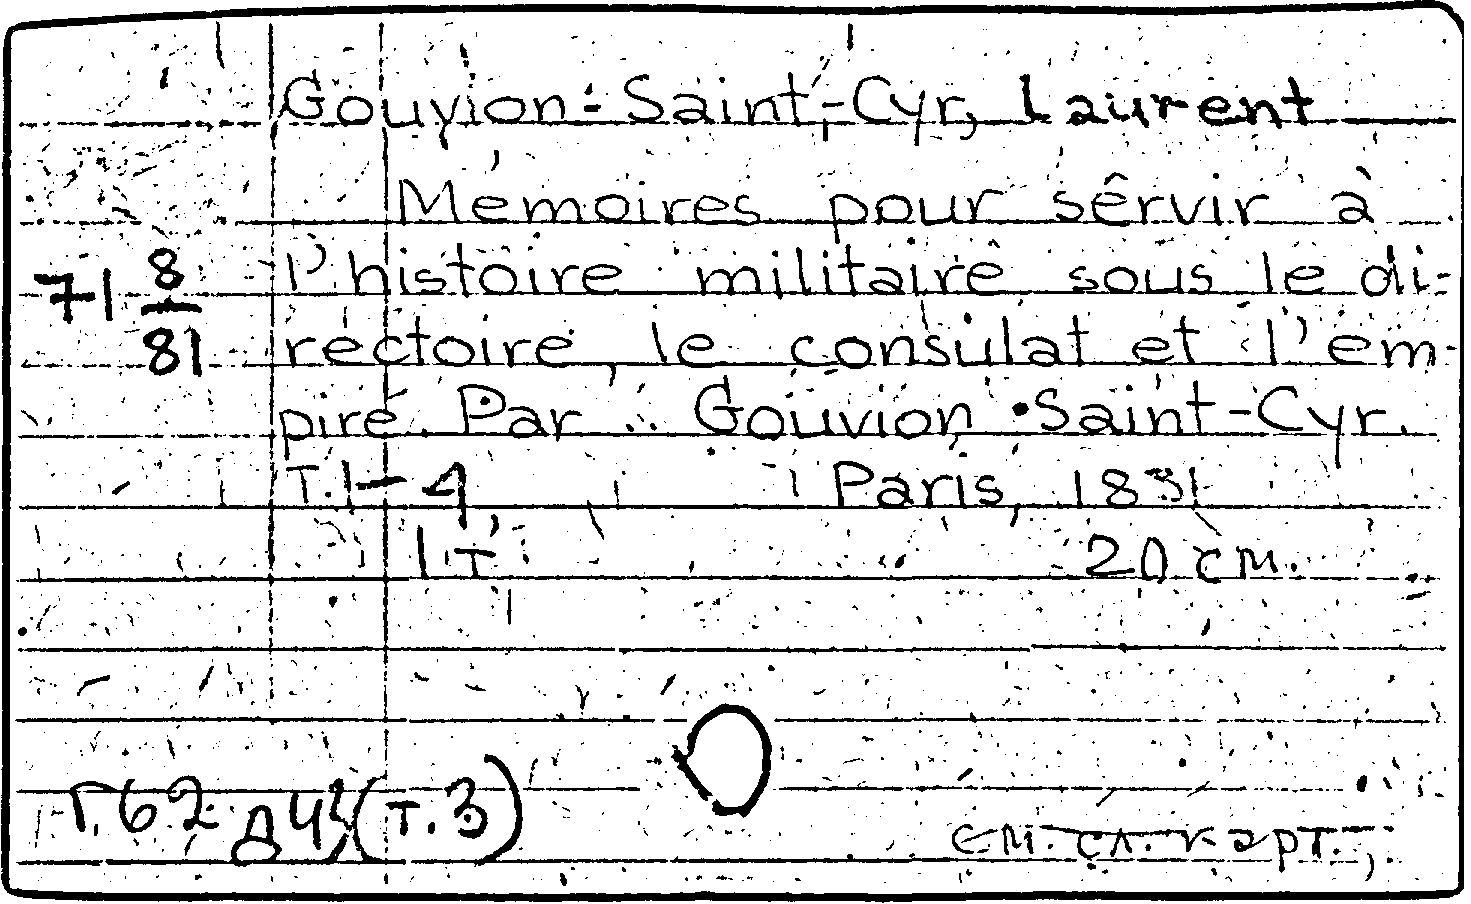 Gouvion-Saint-Cyr, Laurent
Mémoires pour servir à
71 8/81
l'histoire militaire sous le di-
rectoire, le consulat et l'em-
pire. Par ... Gouvion Saint-Cyr.
Т. 1-4, Paris, 1831
1 т. 20 см.
(т. 3)
см. сл. карт.